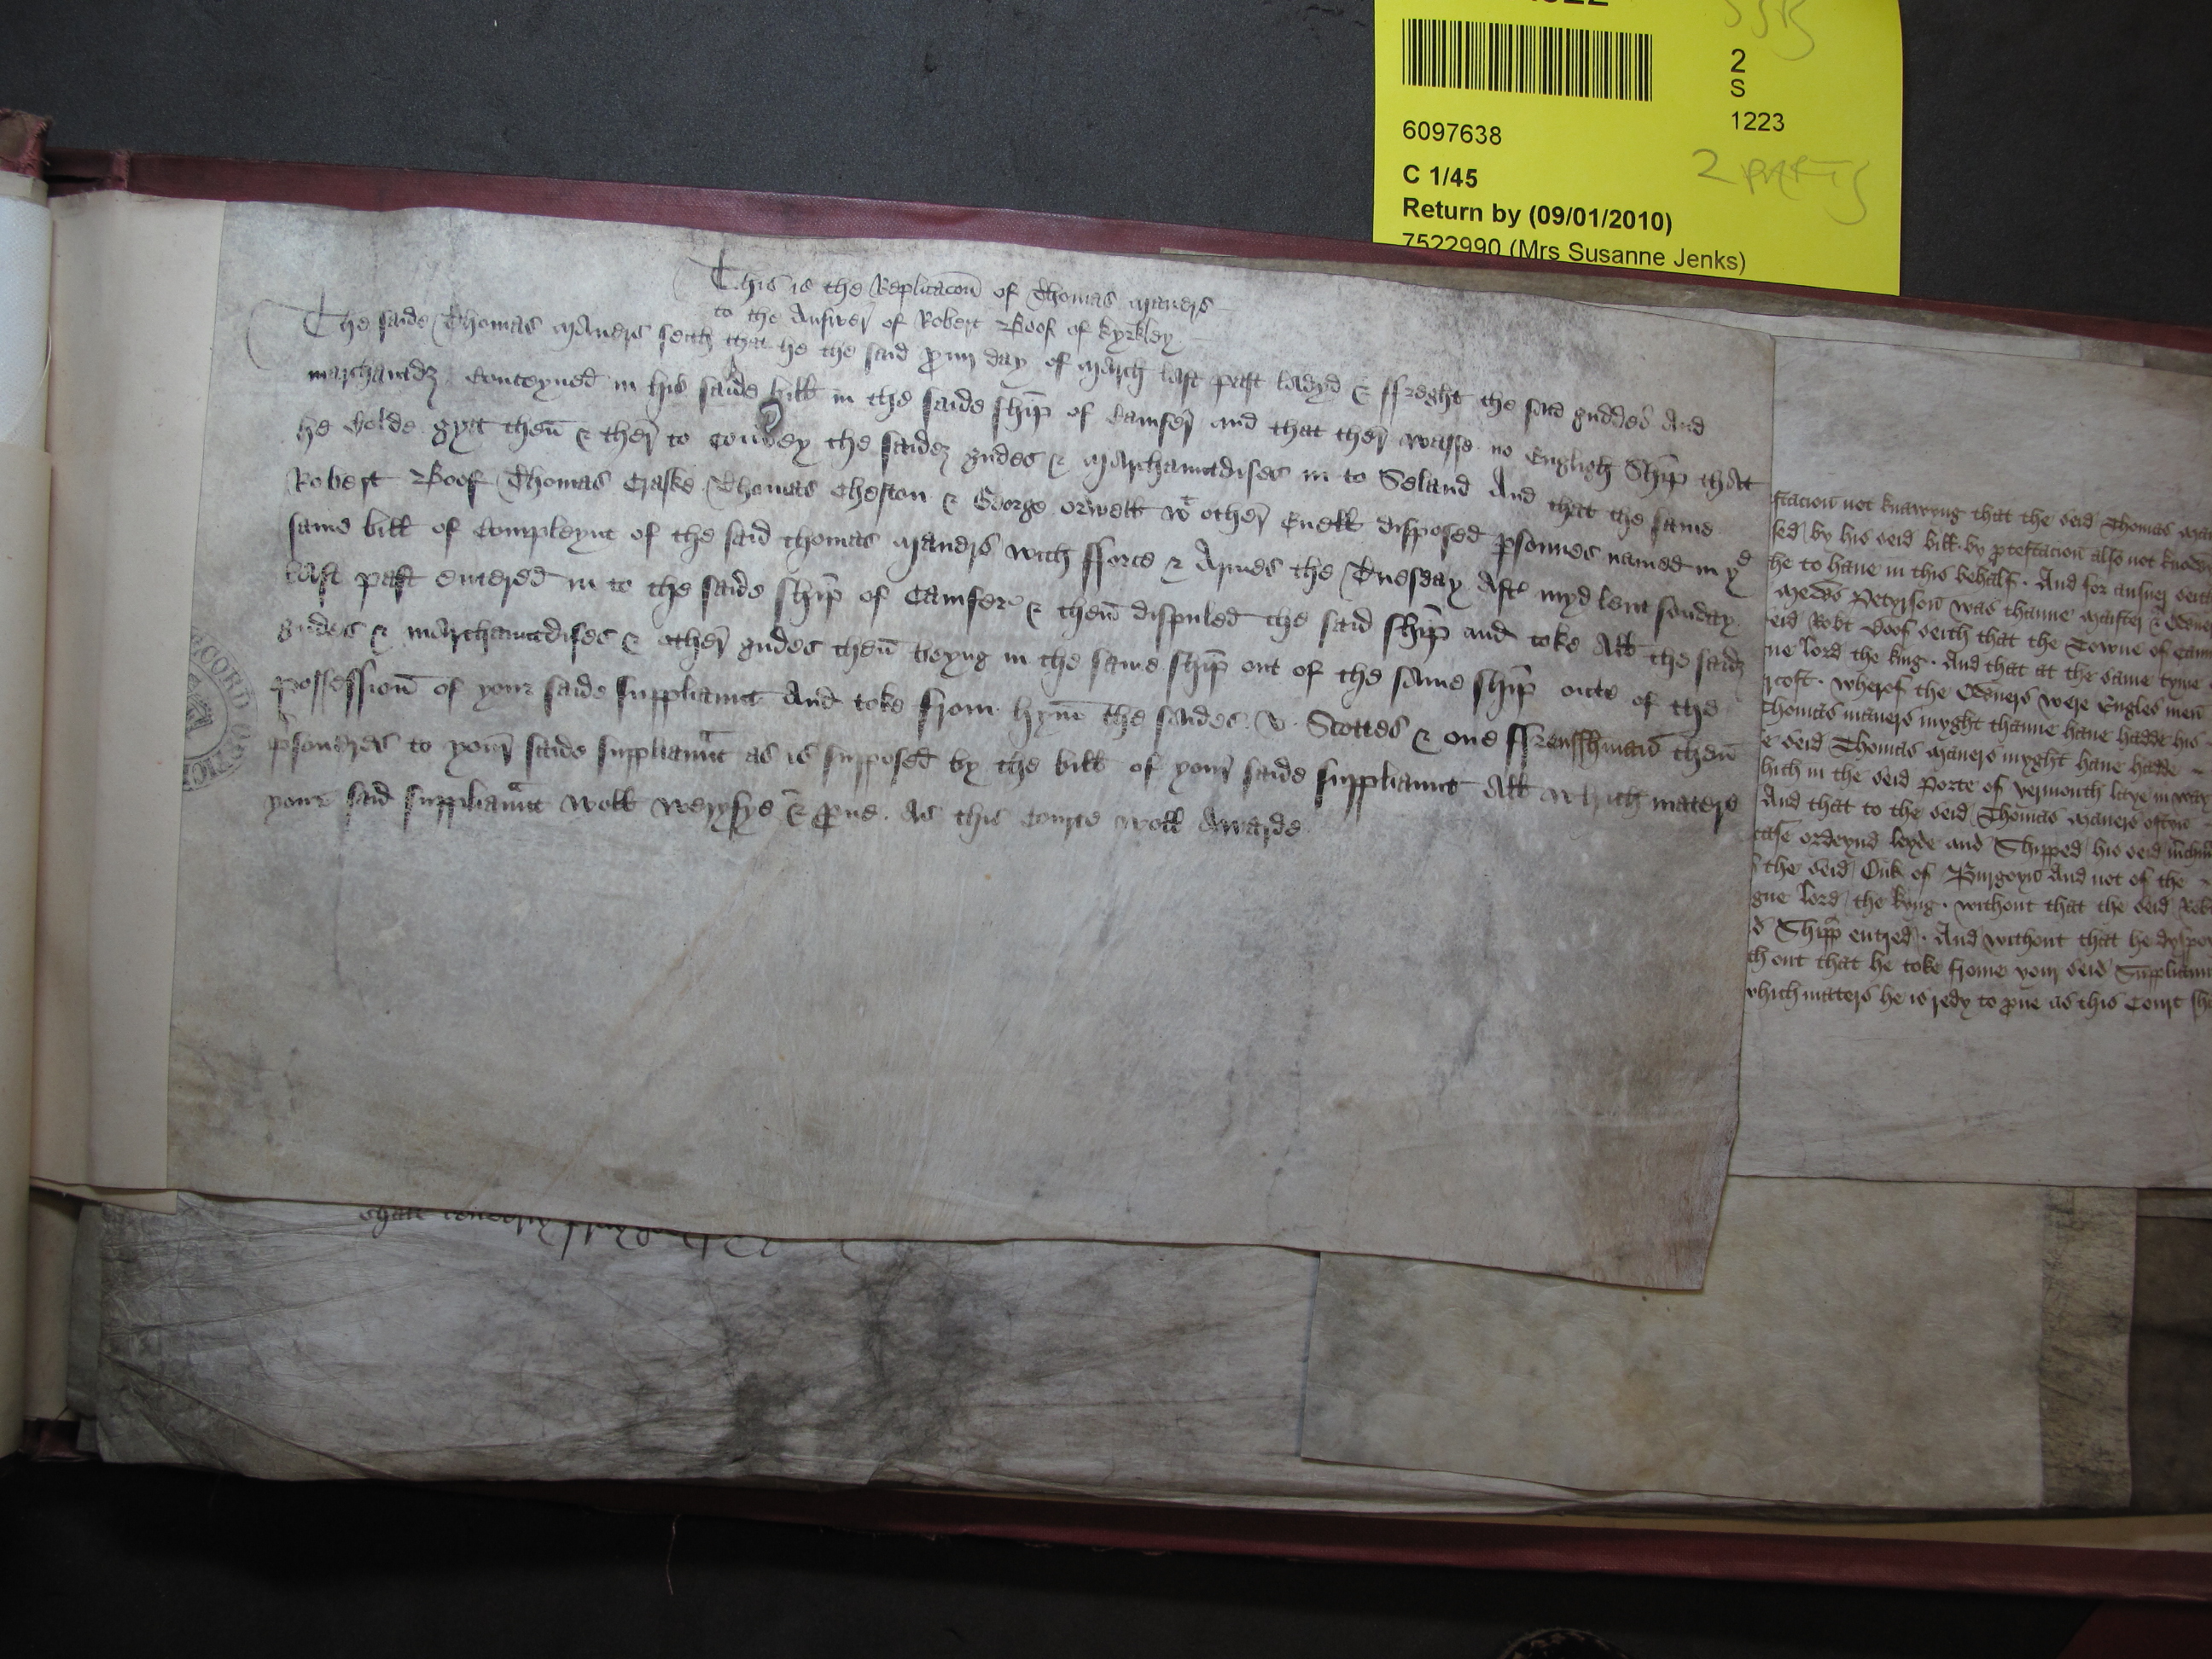 2
S
1223
6097638
C 1/45
2 PARTS
Return by (09/01/2010)
7522990 (Mrs Susanne Jenks)
This is the Replicacoũ of Thomas Maners
to the Answer of Robert Boof of Kyrkley
The saide Thomas Maners seith that he the said day of March last past ladyd & ffreght the said guddes And
marchantdz Conteyned in his saide bill in the saide ship of Camfer and that ther wasse no Englissh Ship that
he Colde gytt theñ & ther to Convey the saidez gudes & Marchauntdises in to Seland And that the same
Robert Boof Thomas Craske Thomas Cheston & George Orwell wt other Euell disposed psonnes named in ye
same bill of Compleynt of the said Thomas Maners with fforce & Armes the Tuesday Aftr myd lent sonday
last past entered in to the saide ship of Camfer & theñ dispuled the said ship and toke All the saidz
gudes & marchauntdises & other gudes theñ beyng in the same ship out of the same ship oute of the
possessioñ of your saide suppliaunt And toke from hym the saides v Scottes & one ffrensshmañ theñ
psoners to your saide suppliaunt as is supposed by the bill of your saide suppliaunt All which maters
your said suppliaunt woll veryfye & proue As this Courte woll Awarde
stacioñ not knawyng that the seid Thomas
sed by his seid bill by ptestacioñ also not
he to haue in this behalf And for answer
Petersoñ was thanne maister &
eid Robt Boof seith that the Towne of
ne lord the king And that at the same tyme
rcost wherof the Owners were Engles meñ
Thomas maners myght thanne haue hadde his
e seid Thomas Maners myght haue hadde
hich in the seid porte of yermouth laye in
And that to the seid Thomas Maners
case ordeynd leyde and Shipped his seid
the seid Duk of Burgoyñ And not of the
gne lord the kyng without that the seid
d Shipp entred And without that he
th out that he toke frome your seid
which maters he is redy to proue as this Court